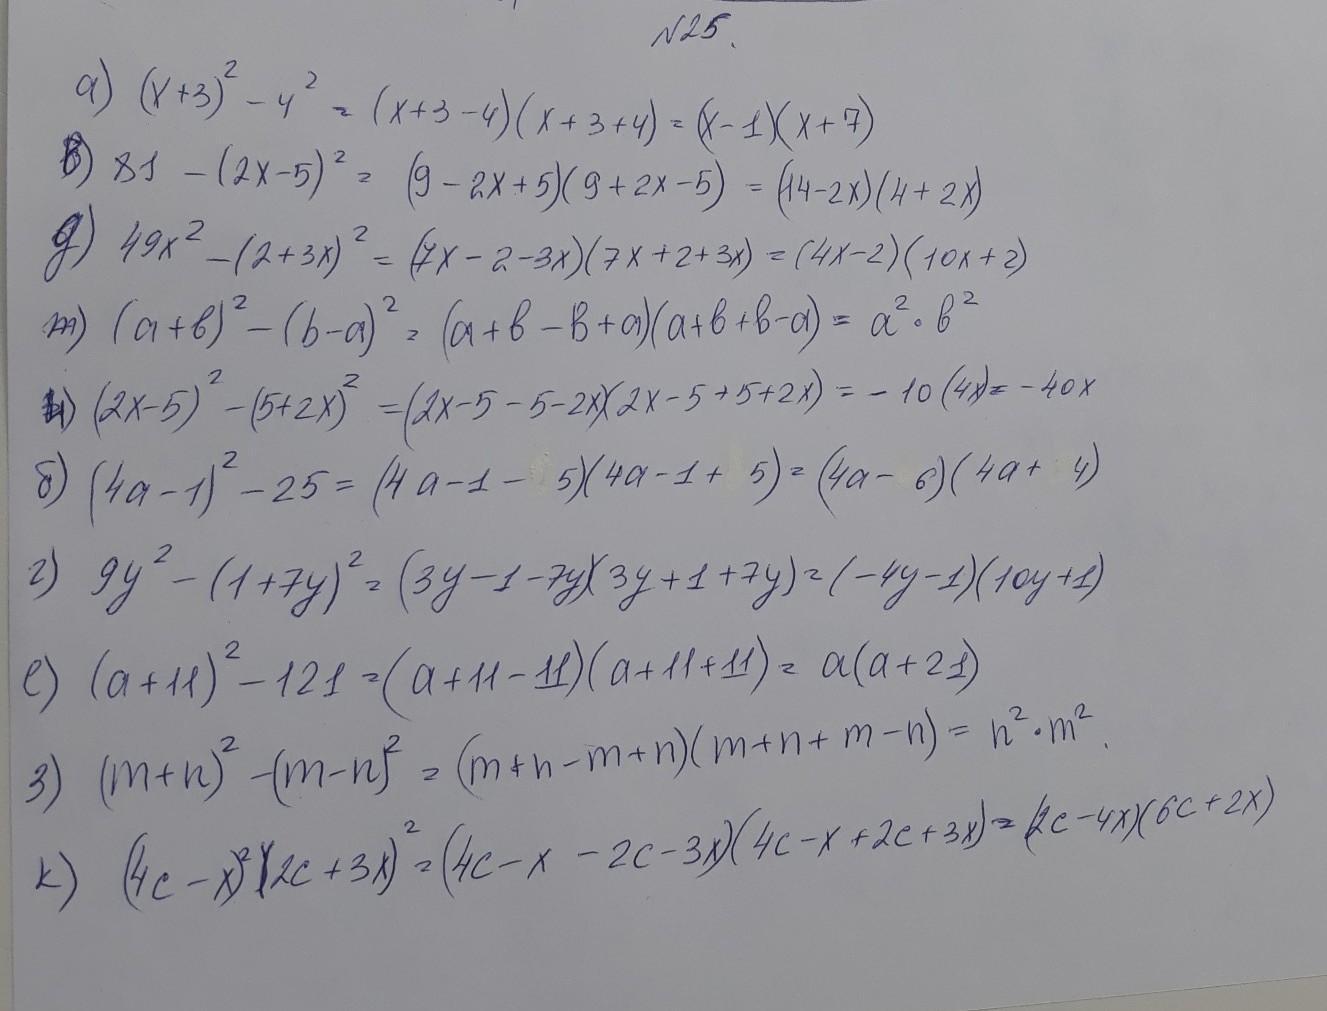 №25.
а) (x+3)² - 4² = (x+3-4)(x+3+4) = (x-1)(x+7)
в) 81 - (2x-5)² = (9-2x+5)(9+2x-5) = (14-2x)(4+2x)
д) 49x² - (2+3x)² = (7x-2-3x)(7x+2+3x) = (4x-2)(10x+2)
ж) (a+b)² - (b-a)² = (a+b-b+a)(a+b+b-a) = a²·b²
и) (2x-5)² - (5+2x)² = (2x-5-5-2x)(2x-5+5+2x) = -10(4x) = -40x
б) (4a-1)² - 25 = (4a-1-5)(4a-1+5) = (4a-6)(4a+4)
г) 9y² - (1+7y)² = (3y-1-7y)(3y+1+7y) = (-4y-1)(10y+1)
е) (a+11)² - 121 = (a+11-11)(a+11+11) = a(a+21)
з) (m+n)² - (m-n)² = (m+n-m+n)(m+n+m-n) = n²·m².
к) (4c-x)²(2c+3x)² = (4c-x-2c-3x)(4c-x+2c+3x) = (2c-4x)(6c+2x)